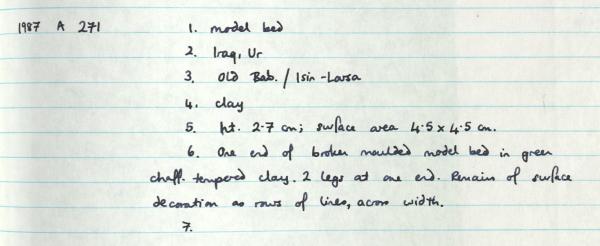 1987 A 271 1. model bed
2. Iraq, Ur
3. Old Bab. / Isin-Larsa
4. clay
5. ht. 2.7 cm; surface area 4.5 x 4.5 cm.
6. One end of broken moulded model bed in green
chaff-tempered clay. 2 legs at one end. Remains of surface
decoration as rows of lines, across width.
7.